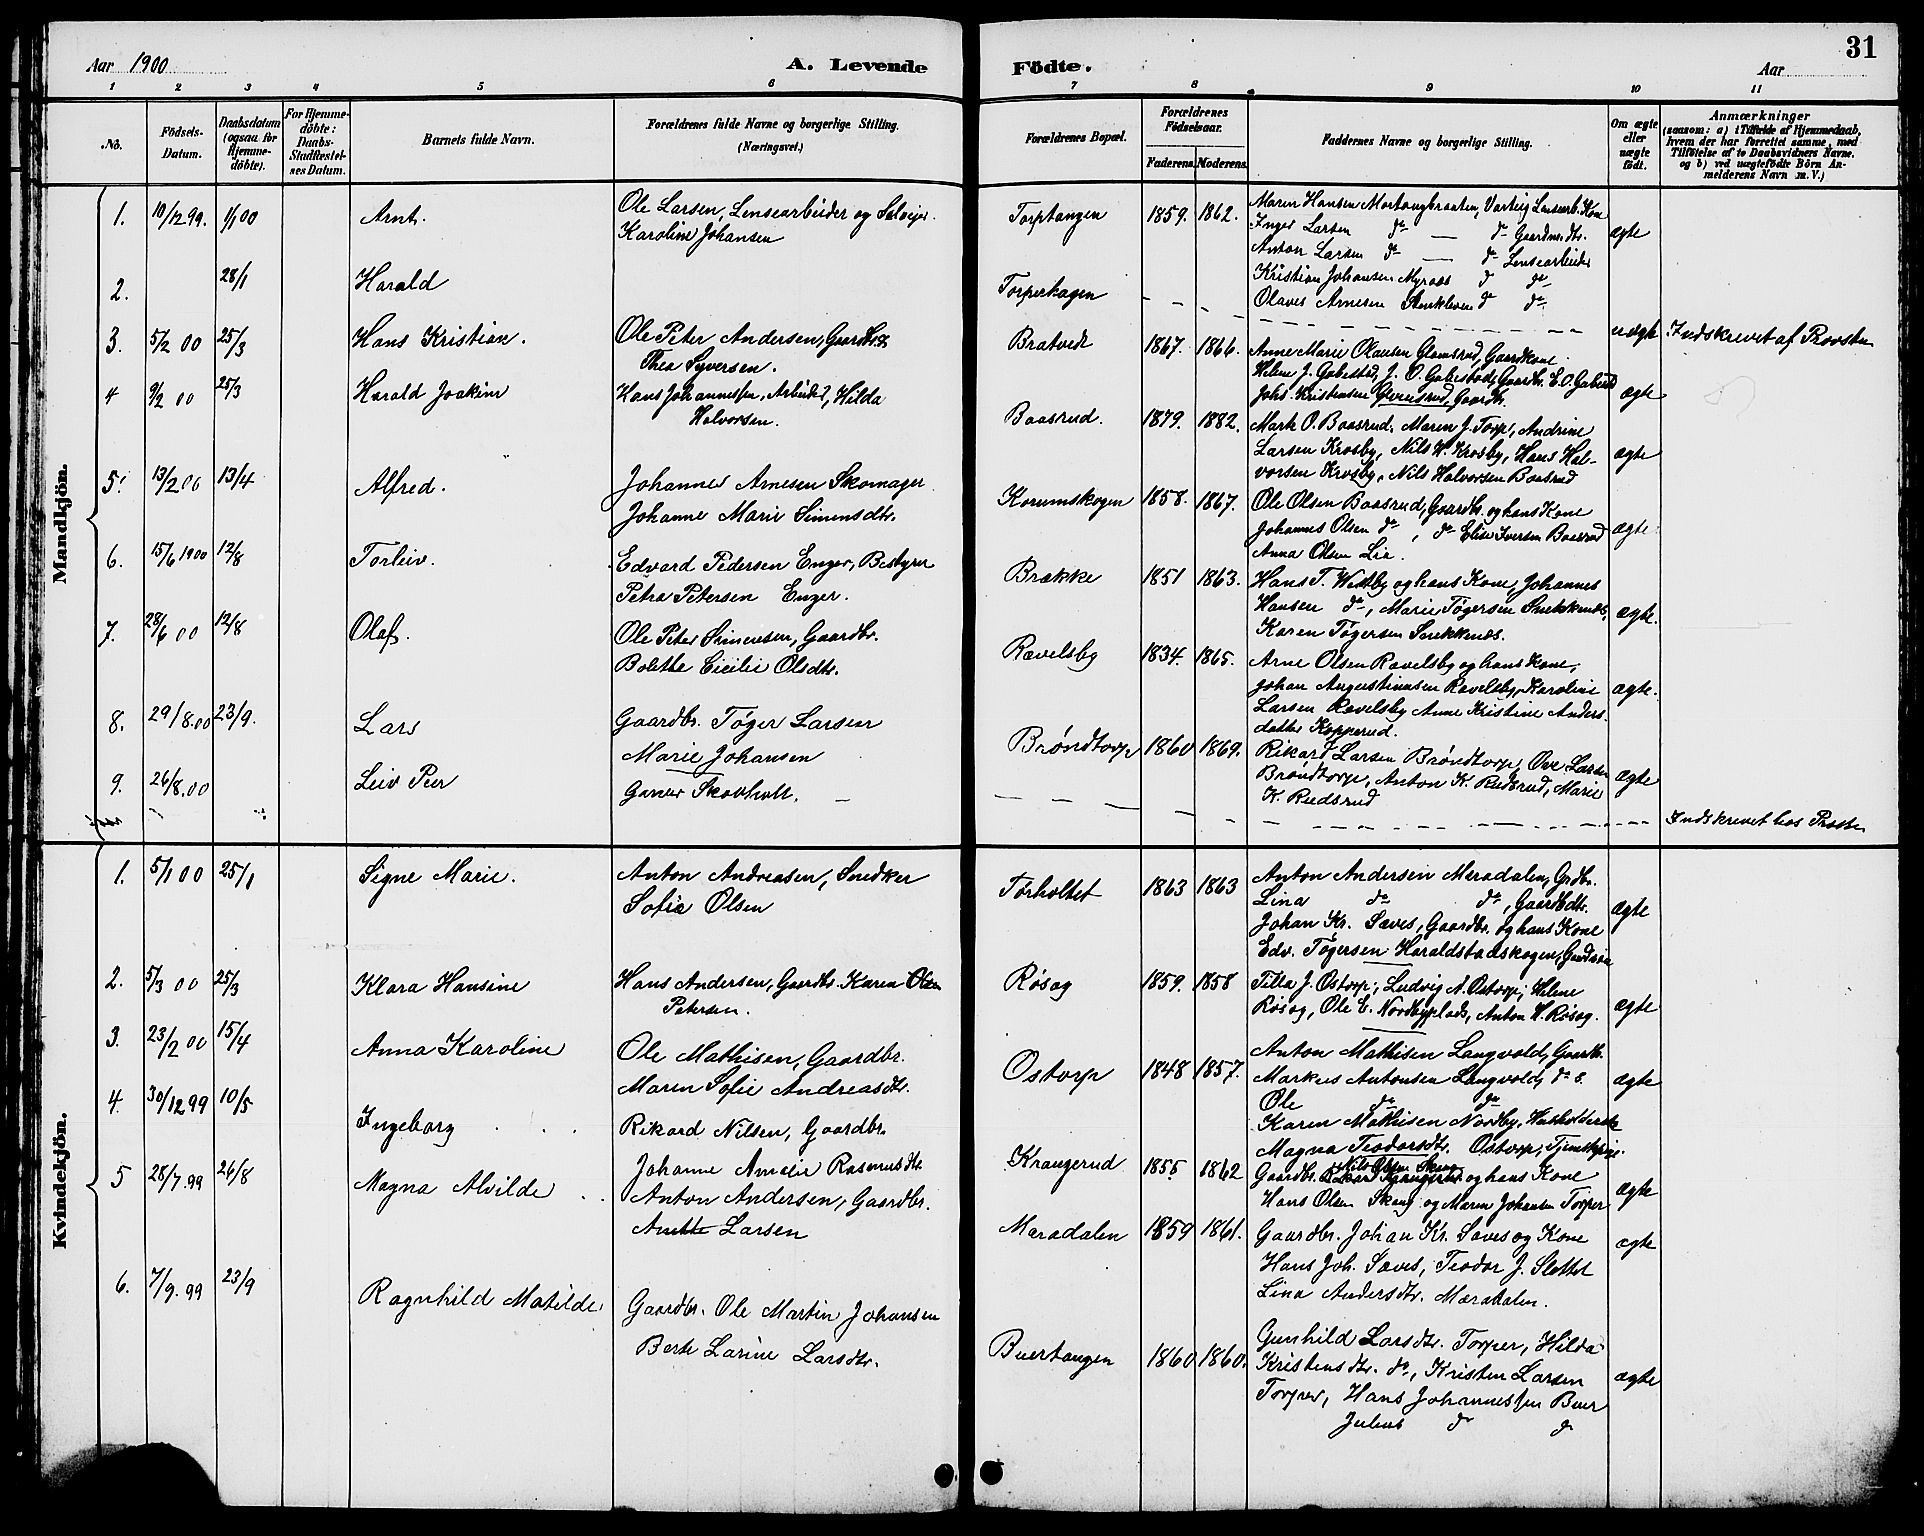 Aar 1900
A. Levende
Födte.
Aar
31
1 2 3 4 5 6 7 8 9 10 11
No.
Födsels-Datum.
Daabsdatum (ogsaa for Hjemmedöbte).
For Hjemmedöbte: Daabs-Stadfæstelses Datum.
Barnets fulde Navn.
Forældrenes fulde Navne og borgerlige Stilling. (Næringsvei.)
Forældrenes Bopæl.
Forældrenes Födselsaar.
Faderens. Moderens.
Faddernes Navne og borgerlige Stilling.
Om ægte eller uægte födt.
Anmærkninger
(saasom: a) i Tilfælde af Hjemmedaab, hvem der har forrettet samme, med Tilföielse af to Daabsvidners Navne, og b) ved uægtefödte Börn Anmelderens Navn m. V.)
Mandkjön.
1. 10/12 99. 1/1 00 Arnt. Ole Larsen, Lensearbeider og Selveier.
Karoline Johansen
Torptangen 1859. 1862. Maren Hansen Mortangbraaten, Varteig Lensearb. Kone
Inger Larsen do — do Gaardmdtr.
Anton Larsen do — do Lensearbeider
Kristian Johansen Myraas do do
Olaves Arnesen Stenkleven do do
ægte
2. 28/1 Harald Torperhagen
uægte Indskrevet af Provsten
3. 5/2 00 25/3 Hans Kristian. Ole Peter Andersen, Gaardbr.
Thea Syversen.
Bratvedt 1867. 1866. Anne Marie Olausen Glomsrud, Gaardkone
Helene J. Gabestad, J. O. Gabestad, Gaardbr. E. O. Gabestad
Johs. Kristensen Glomsrud, Gaardbr.
ægte
4 9/2 00 25/3 Harald Joakim Hans Johannessen, Arbeider, Hilda
Halvorsen.
Baasrud. 1879. 1882. Mark O. Baasrud. Maren J. Torp, Andrine
Larsen Krosby, Nils H. Krosby, Hans Hal-
vorsen Krosby, Nils Halvorsen Baasrud
ægte
5. 13/2 00 13/4 Alfred. Johannes Arnesen Skomager
Johanne Marie Simensdtr.
Korumskogen 1858. 1867. Ole Olsen Baasrud, Gaardbr. og hans Kone
Johannes Olsen do, do Elise Iversen Baasrud
Anna Olsen Lie.
ægte.
6. 15/6 1900 12/8 Torleiv. Edvard Pedersen Enger, Bestyrer
Petra Petersen Enger.
Brække 1851 1863. Hans T. Westby og hans Kone, Johannes
Hansen do, Marie Tøgersen Snekkenes,
Karen Tøgersen Snekkenes.
ægte.
7. 28/6 00 12/8 Olaf. Ole Peter Simensen, Gaardbr.
Bolette Cicilie Olsdtr.
Ravelsby 1834. 1865. Arne Olsen Ravelsby og hans Kone,
Johan Augustinusen Ravelsby, Karoline
Larsen Ravelsby Anne Kristine Anders-
datter Kopperud.
ægte.
8. 29/8.00 23/9. Lars Gaardbr. Tøger Larsen
Marie Johansen
Brøndtorp 1860 1869. Rikard Larsen Brøndtorp, Ove Larsen
Brøndtorp, Anton K. Rudsrud, Marie
K. Rudsrud
ægte
9. 26/8.00 Leiv Peer Skovholt.
Indskrevet hos Provsten
Kvindekjön.
1. 5/1 00 25/1 Signe Marie. Anton Andreasen, Snedker
Sofie Olsen
Tørholtet 1863 1863 Anton Andersen Maradalen, Grdbr.
Lina do do, Gaardbdtr.
Johan Kr. Saves, Gaardbr. og hans Kone
Edv. Tøgersen Haraldstadskogen, Gaardmand
ægte
2. 5/3 00 25/3 Klara Hansine Hans Andersen, Gaardbr. Karen Olsen
Petersen.
Røsæg 1859. 1858 Tilla J. Ostorp, Ludvig A. Ostorp, Helene
Røsæg, Ole E. Nordbyplads, Anton H. Røsæg.
ægte
3. 23/2 00 15/4 Anna Karoline Ole Mathisen, Gaardbr.
Maren Sofie Andreasdtr.
Ostorp 1848 1857. Anton Mathisen Langvold, Gaardbr.
Markus Antonsen Langvold, do s.
Ole do do
Karen Mathisen Nordby, Husholderske
Magna Teodorsdtr. Ostorp, Tjenstepige
ægte
4. 30/12 99 10/5 Ingeborg Rikard Nilsen, Gaardbr.
Johanne Amalie Rasmusdtr.
Krangerud 1855 1862 Nils Olsen Skaug
Gaardbr. Rikard Krangerud og hans Kone
Hans Olsen Skaug og Maren Johansen Torper
ægte
5 28/7.99 26/8 Magna Alvilde Anton Andersen, Gaardbr.
Anette Larsen
Maradalen 1859 1861. Gaardbr. Johan Kr. Saves og Kone
Hans Joh. Saves, Teodor J. Slettet
Lina Andersdtr. Maradalen.
ægte
6. 7/9.99 23/9 Ragnhild Matilde Gaardbr. Ole Martin Johansen
Berte Larine Larsdtr.
Buertangen 1860 1860. Gunhild Larsdtr. Torper, Hilda
Kristensdtr. do, Kristen Larsen
Torper, Hans Johannessen Buer
Julius do do
ægte